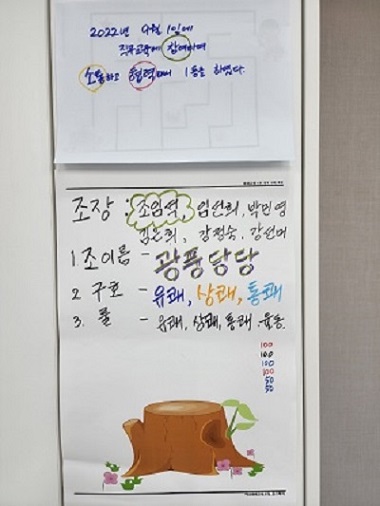 2022년 9월 1일에
직무교육에 참여하며
소통하고 협력해서 1등을 하였다.
조장 : 조임석, 임선희, 박민영
김은희, 강정숙, 강선미
1. 조이름 - 광풍당당
2. 구호 - 유쾌, 상쾌, 통쾌
3. 룰 - 유쾌, 상쾌, 통쾌 율동.
100
100
100
100
50
50